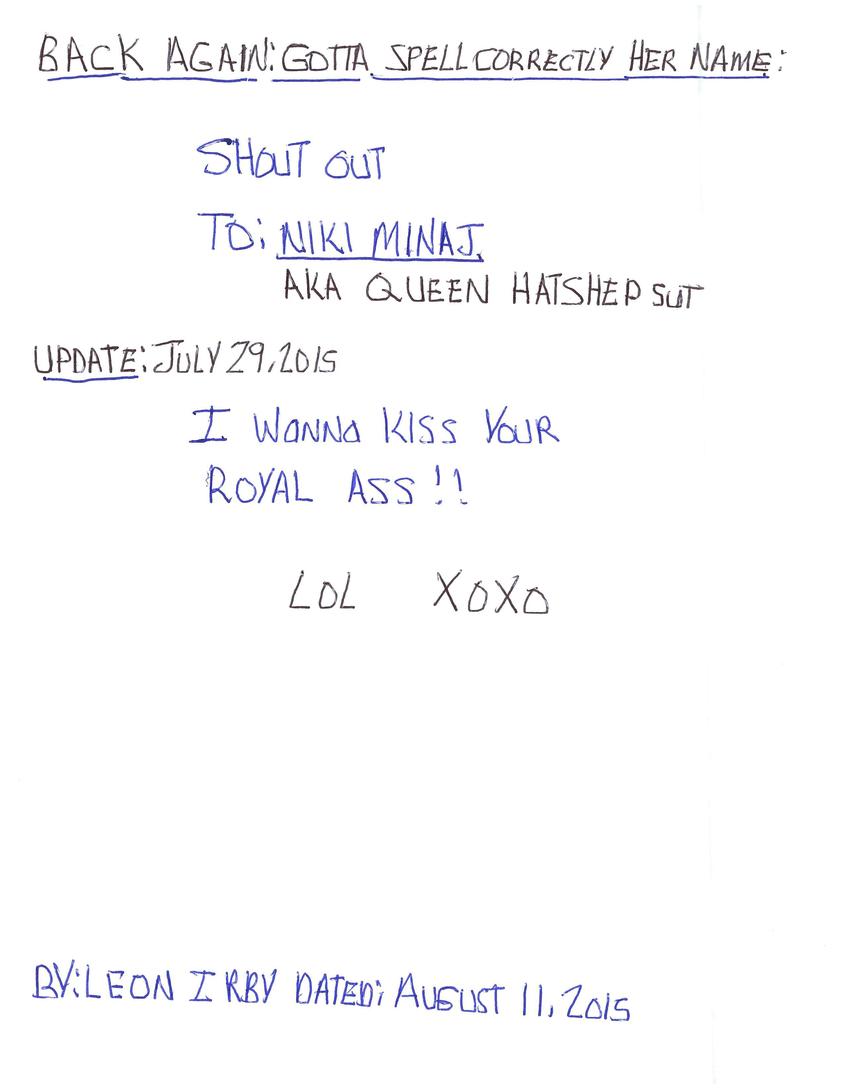 BACK AGAIN: GOTTA SPELL CORRECTLY HER NAME:
SHOUT OUT
TO: NIKI MINAJ.
AKA QUEEN HATSHEPSUT
UPDATE: JULY 29, 2015
I WANNA KISS YOUR
ROYAL ASS!!
LOL XOXO
BY: LEON IRBY DATED: AUGUST 11, 2015